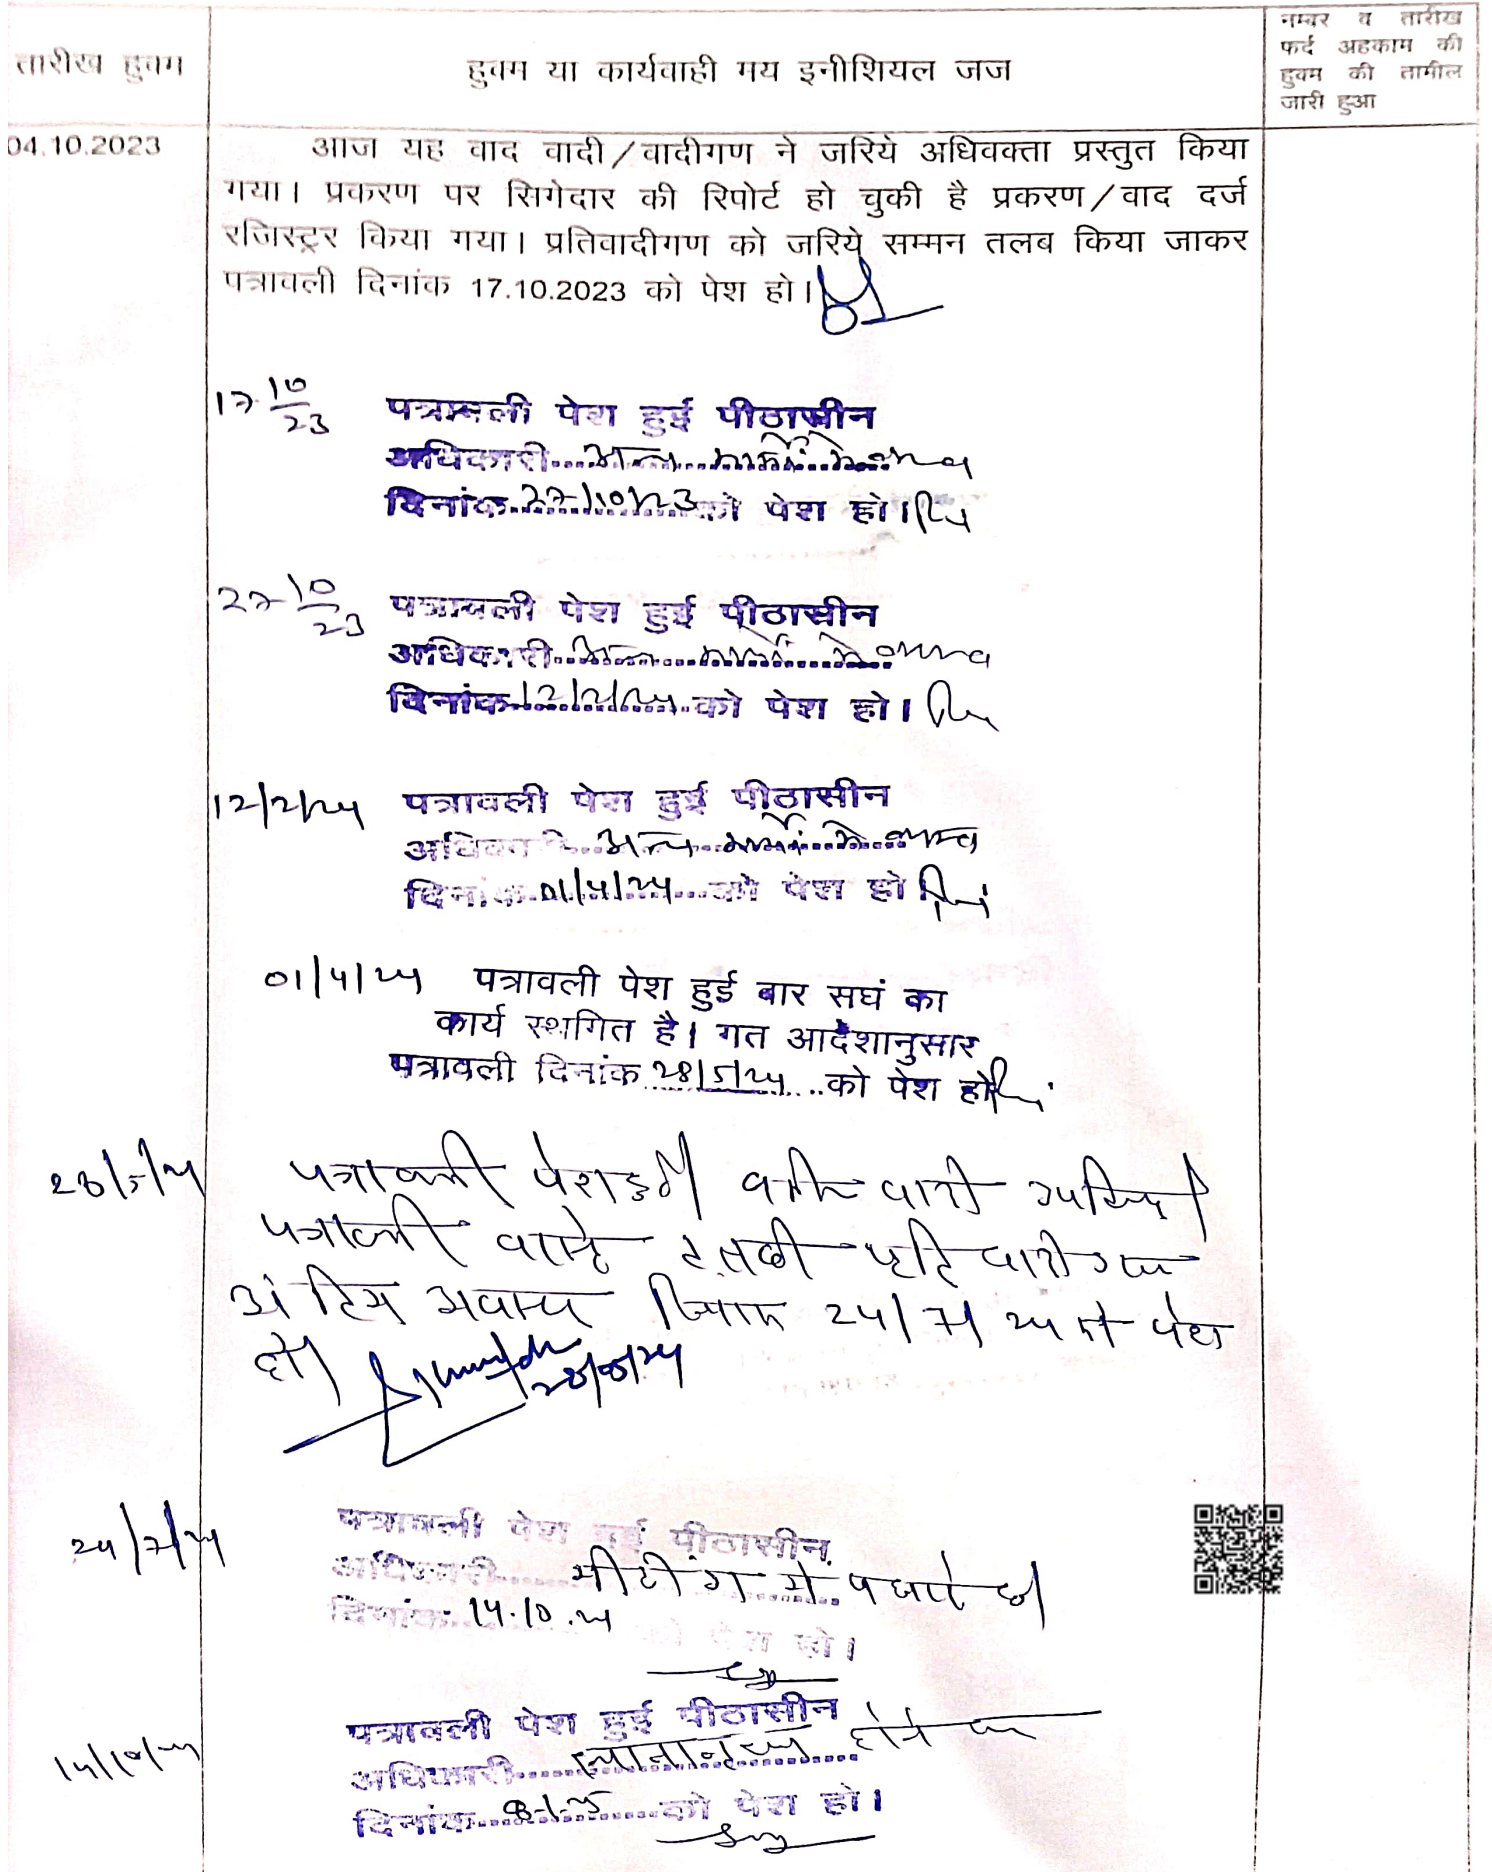 तारीख हुक्म
हुक्म या कार्यवाही मय इनीशियल जज
नम्बर व तारीख
फर्द अहकाम की
हुक्म की तामील
जारी हुआ
04.10.2023
आज यह वाद वादी/वादीगण ने जरिये अधिवक्ता प्रस्तुत किया
गया। प्रकरण पर सिगेदार की रिपोर्ट हो चुकी है प्रकरण/वाद दर्ज
रजिस्ट्रर किया गया। प्रतिवादीगण को जरिये सम्मन तलब किया जाकर
पत्रावली दिनांक 17.10.2023 को पेश हो।
17-10/23 पत्रावली पेश हुई पीठासीन
अधिकारी अन्य कार्यो मे व्यस्त
दिनांक 27/10/23 को पेश हो।
27-10/23 पत्रावली पेश हुई पीठासीन
अधिकारी अन्य कार्यो मे व्यस्त
दिनांक 12/2/24 को पेश हो।
12/2/24 पत्रावली पेश हुई पीठासीन
अधिकारी अन्य कार्यो मे व्यस्त
दिनांक 01/4/24 को पेश हो
01/4/24 पत्रावली पेश हुई बार सघं का
कार्य स्थगित है। गत आदेशानुसार
पत्रावली दिनांक 28/5/24 को पेश हो
28/5/24 पत्रावली पेश हुई वकील वादी उपस्थित
पत्रावली वास्ते तलबी प्रतिवादीगण
अंतिम अवसर दिनांक 24/7/24 को पेश
हो।
28/05/24
24/7/24 पत्रावली पेश हुई पीठासीन
अधिकारी मीटींग मे पधारे है।
दिनांक 14.10.24
को पेश हो।
14/10/24 पत्रावली पेश हुई पीठासीन
अधिकारी स्थानान्तरण होने से
दिनांक 8-1-25 को पेश हो।